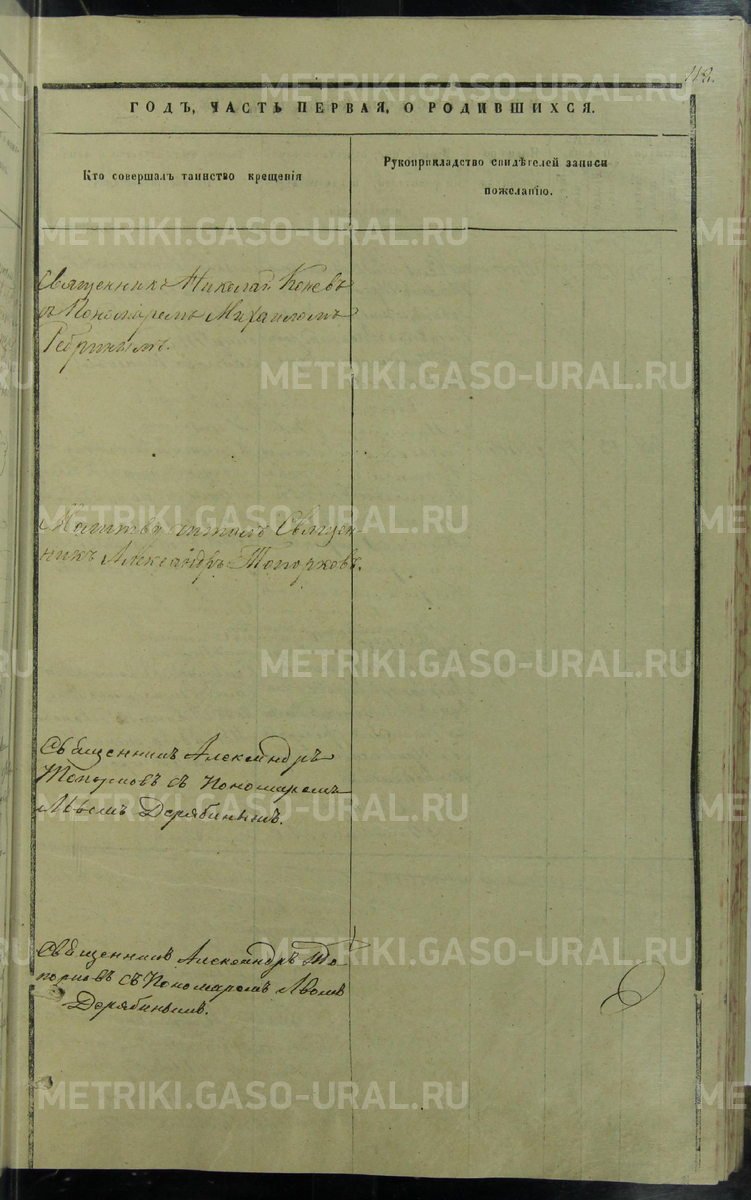 ГОДЪ, ЧАСТЬ ПЕРВАЯ, О РОДИВШИХСЯ.
Кто совершалъ таинство крещенія
Рукоприкладство свидѣтелей записи
пожеланію.
Священникъ Николай Коневъ
съ Пономаремъ Михаиломъ
Молитвъ читалъ Священ-
никъ Александръ Топорковъ.
Священникъ Александръ
Топорковъ съ Пономаремъ
Львомъ Дерябинымъ.
Священникъ Александръ То-
порковъ съ Пономаремъ Львомъ
Дерябинымъ.
METRIKI.GASO-URAL.RU